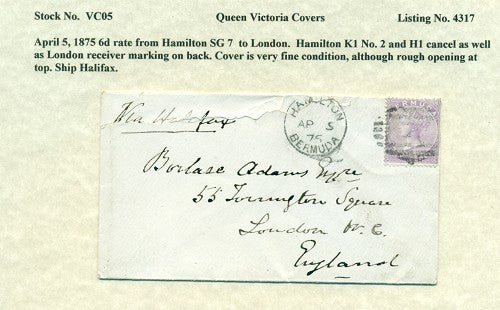 Stock No. VC05 Queen Victoria Covers Listing No. 4317
April 5, 1875 6d rate from Hamilton SG 7 to London. Hamilton K1 No. 2 and H1 cancel as well
as London receiver marking on back. Cover is very fine condition, although rough opening at
top. Ship Halifax.
Via Halifax
HAMILTON
AP 5
75
BERMUDA
BERMUDA
Borlase Adams Esqre
55 Torrington Square
London W.C.
England